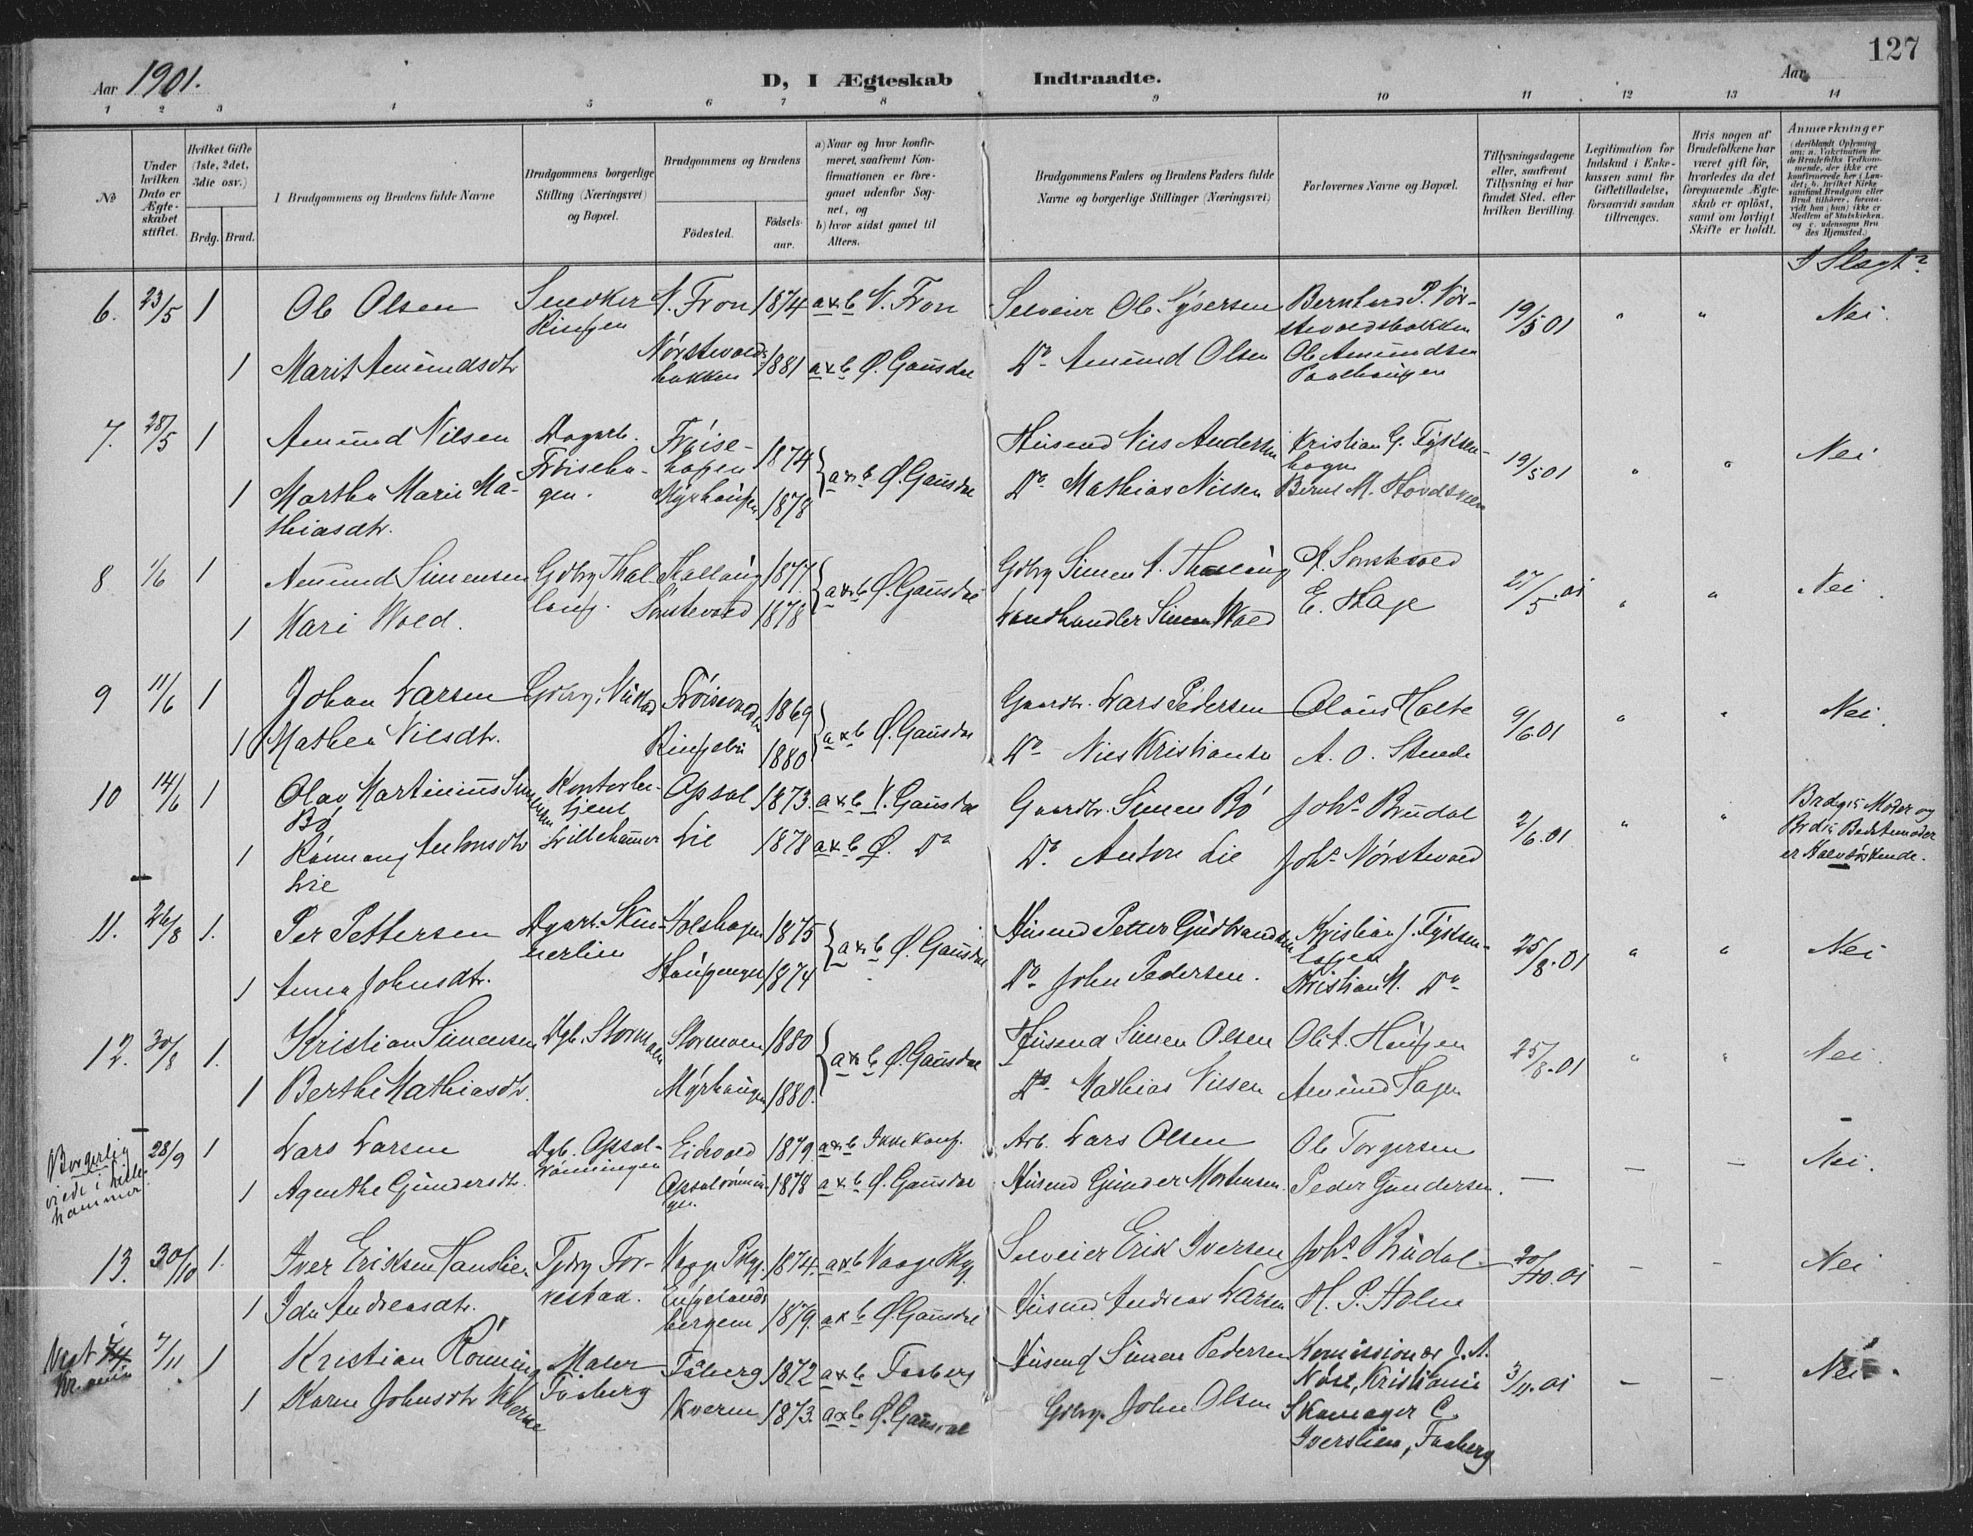 127
Aar 1901.
D, I Ægteskab Indtraadte.
Aar
1 2 3 4 5 6 7 8 9 10 11 12 13 14
No
Under hvilken Dato er Ægteskabet stiftet.
Hvilket Gifte (1ste, 2det, 3die osv.)
Brdg. Brud.
I Brudgommens og Brudens fulde Navne
Brudgommens borgerlige Stilling (Næringsvei) og Bopæl.
Brudgommens og Brudens
Födested. Födselsaar.
a) Naar og hvor konfirmeret, saafremt Konfirmationen er foregaaet udenfor Sognet, og
b) hvor sidst gaaet til Alters.
Brudgommens Faders og Brudens Faders fulde Navne og borgerlige Stillinger (Næringsvei)
Forlovernes Navne og Bopæl.
Tillysningsdagene eller, saafremt Tillysning ei har fundet Sted, efter hvilken Bevilling.
Legitimation for Indskud i Enkekassen samt for Giftetilladelse, forsaavidt saadan tiltrænges.
Hvis nogen af Brudefolkene har været gift för, hvorledes da det foregaaende Ægteskab er oplöst, samt om lovligt Skifte er holdt.
Anmærkninger
I Slægt?
6. 23/5 1 Ole Olsen Snedker N. Fron 1874 a & b N. Fron Selveier Ole Syversen Bernhard P. Nör- 19/5 01 " " Nei.
stevoldsbakken
1 Marit Amundsdtr. Nörstevolds- 1881 a & b Ø. Gausdal Do Amund Olsen Ole Amundsen
bakken Paalhaugen
7. 28/5 1 Amund Nilsen Dagarb. Fröise- 1874 a & b Ø. Gausdal Husmd Nils Andersen Kristian G. Fyksen- 19/5 01 " " Nei
Fröiseha- hagen hagen
1 Martha Marie Ma- gen. Myrhaugen 1878 Do Mathias Nilsen Bernt M.
thiasdtr.
8 1/6 1 Amund Simensen Gdbr. 1877 a & b Ø. Gausdal Gdbr Simen A. A. 27/5.01 " " Nei.
1 Kari Wold. 1878 Landhandler Simen Wold E. Hage
9 11/6 1 Johan Larsen Gdbr. Fröisvold 1869 a & b Ø. Gausdal Gaardbr. Lars Pedersen Olaus Holte 9/6.01 " " Nei.
1 Mathea Nilsdtr. Ringebu 1880 Do Nils Kristiansen A. O. Steude
10 14/6 1 Olav Martinius Simensen Kontorbe- Opsal 1873. a & b V. Gausdal Gaardbr. Simen Bö Johs Brudal 2/6.01 " " Brdgs Moder og
Bö tjent Brds Bedstemoder
1 Rönnaug Antonsdtr Lillehammer Lie 1878 a & b Ø. Do Do Anton Lie Johs Nörstevold er Halvsöskende.
Lie
11. 26/8 1. Per Pettersen Dgarb. Skin- Holshagen 1875 a & b Ø. Gausdal Husmd Petter Gudbrandsen Kristian J. Fyksen- 25/8.01 " " Nei
nerlien hagen
1 Anna Johnsdtr. Haugengen 1874 Do John Pedersen. Kristian M. Do
12. 30/8 1. Kristian Simensen Dgb. Stormoen Stormoen 1880 a & b Ø. Gausdal Husmd Simen Olsen Ole A. Haugen 25/8.01 " " Nei.
1 Berthe Mathiasdtr. Myrhaugen 1880. Do Mathias Nilsen Amund Hagen
Borgerlig viede i Lillehammer 28/9 1 Lars Larsen Dgb. Opsal- Eidsvold 1879. a & b Ikke konf. Arb. Lars Olsen Ole Torgersen — — — Nei.
rönningen
1 Agnethe Gundersdtr. Opsalrönnin- 1878 a & b Ø. Gausdal Husmd Gunder Mortensen. Peder Gundersen.
gen.
13. 30/10 1. Iver Eriksen Hanslien. For- Vaage Pkg. 1874. a & b Vaage Pkg Selveier Erik Iversen Johs Brudal 20/10.01 — — Nei
1 Ida Andreasdtr. vestad. bergem 1879. a & b Ø. Gausdal Husmd Andreas Larsen H. P. Holm
7/11. 1 Kristian Rönning Maler Faaberg 1872 a & b Faaberg Husmd Simen Pedersen Komissionær J. A. 3/11.01 — — Nei.
Faaberg Kristiania
1 Karen Johnsdtr. Kverne Kvernen 1873. a & b Ø. Gausdal Gdbr. John Olsen Skomager C.
Iverslien, Faaberg